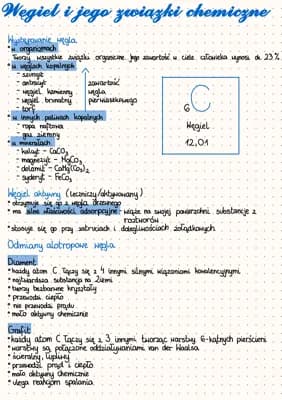 Węgiel i jego związki chemiczne
Występowanie węgla
• w organizmach
Tworzy wszystkie związki organiczne. Jego zawartość w ciele człowieka wynosi ok. 23%
• w węglach kopalnych
- szungit
- antracyt
- węgiel kamienny
- węgiel brunatny
- torf
zawartość
węgla
pierwiastkowego
• w innych paliwach kopalnych
- ropa naftowa
- gaz ziemny
• w minerałach
- kalcyt - CaCO3
- magnezyt - MgCO3
- dolomit - CaMg(CO3)2
- syderyt - FeCO3
6 C
Węgiel
12,01
Węgiel aktywny (leczniczy/aktywowany)
• otrzymuje się go z węgla drzewnego
• ma silne właściwości adsorpcyjne - wiąże na swojej powierzchni substancje z
roztworów
• stosuje się go przy zatruciach i dolegliwościach żołądkowych
Odmiany alotropowe węgla
Diament
• każdy atom C łączy się z 4 innymi silnymi wiązaniami kowalencyjnymi
• najtwardsza substancja na Ziemi
• tworzy bezbarwne kryształy
• przewodzi ciepło
• nie przewodzi prądu
• mało aktywny chemicznie
Grafit
• każdy atom C łączy się z 3 innymi tworząc warstwy 6-kątnych pierścieni
• warstwy są połączone oddziaływaniami van der Waalsa
• ścieralny, łupliwy
• przewodzi prąd i ciepło
• mało aktywny chemicznie
• ulega reakcjom spalania